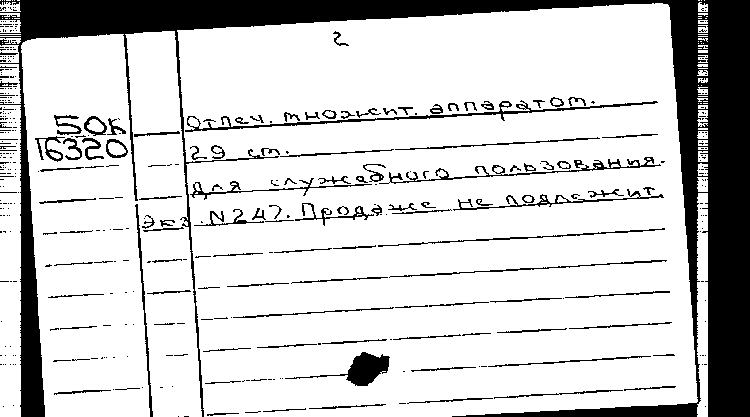 2
50к
16320
Отпеч. множит. аппаратом.
29 см.
Для служебного пользования.
Экз. N 247. Продаже не подлежит.